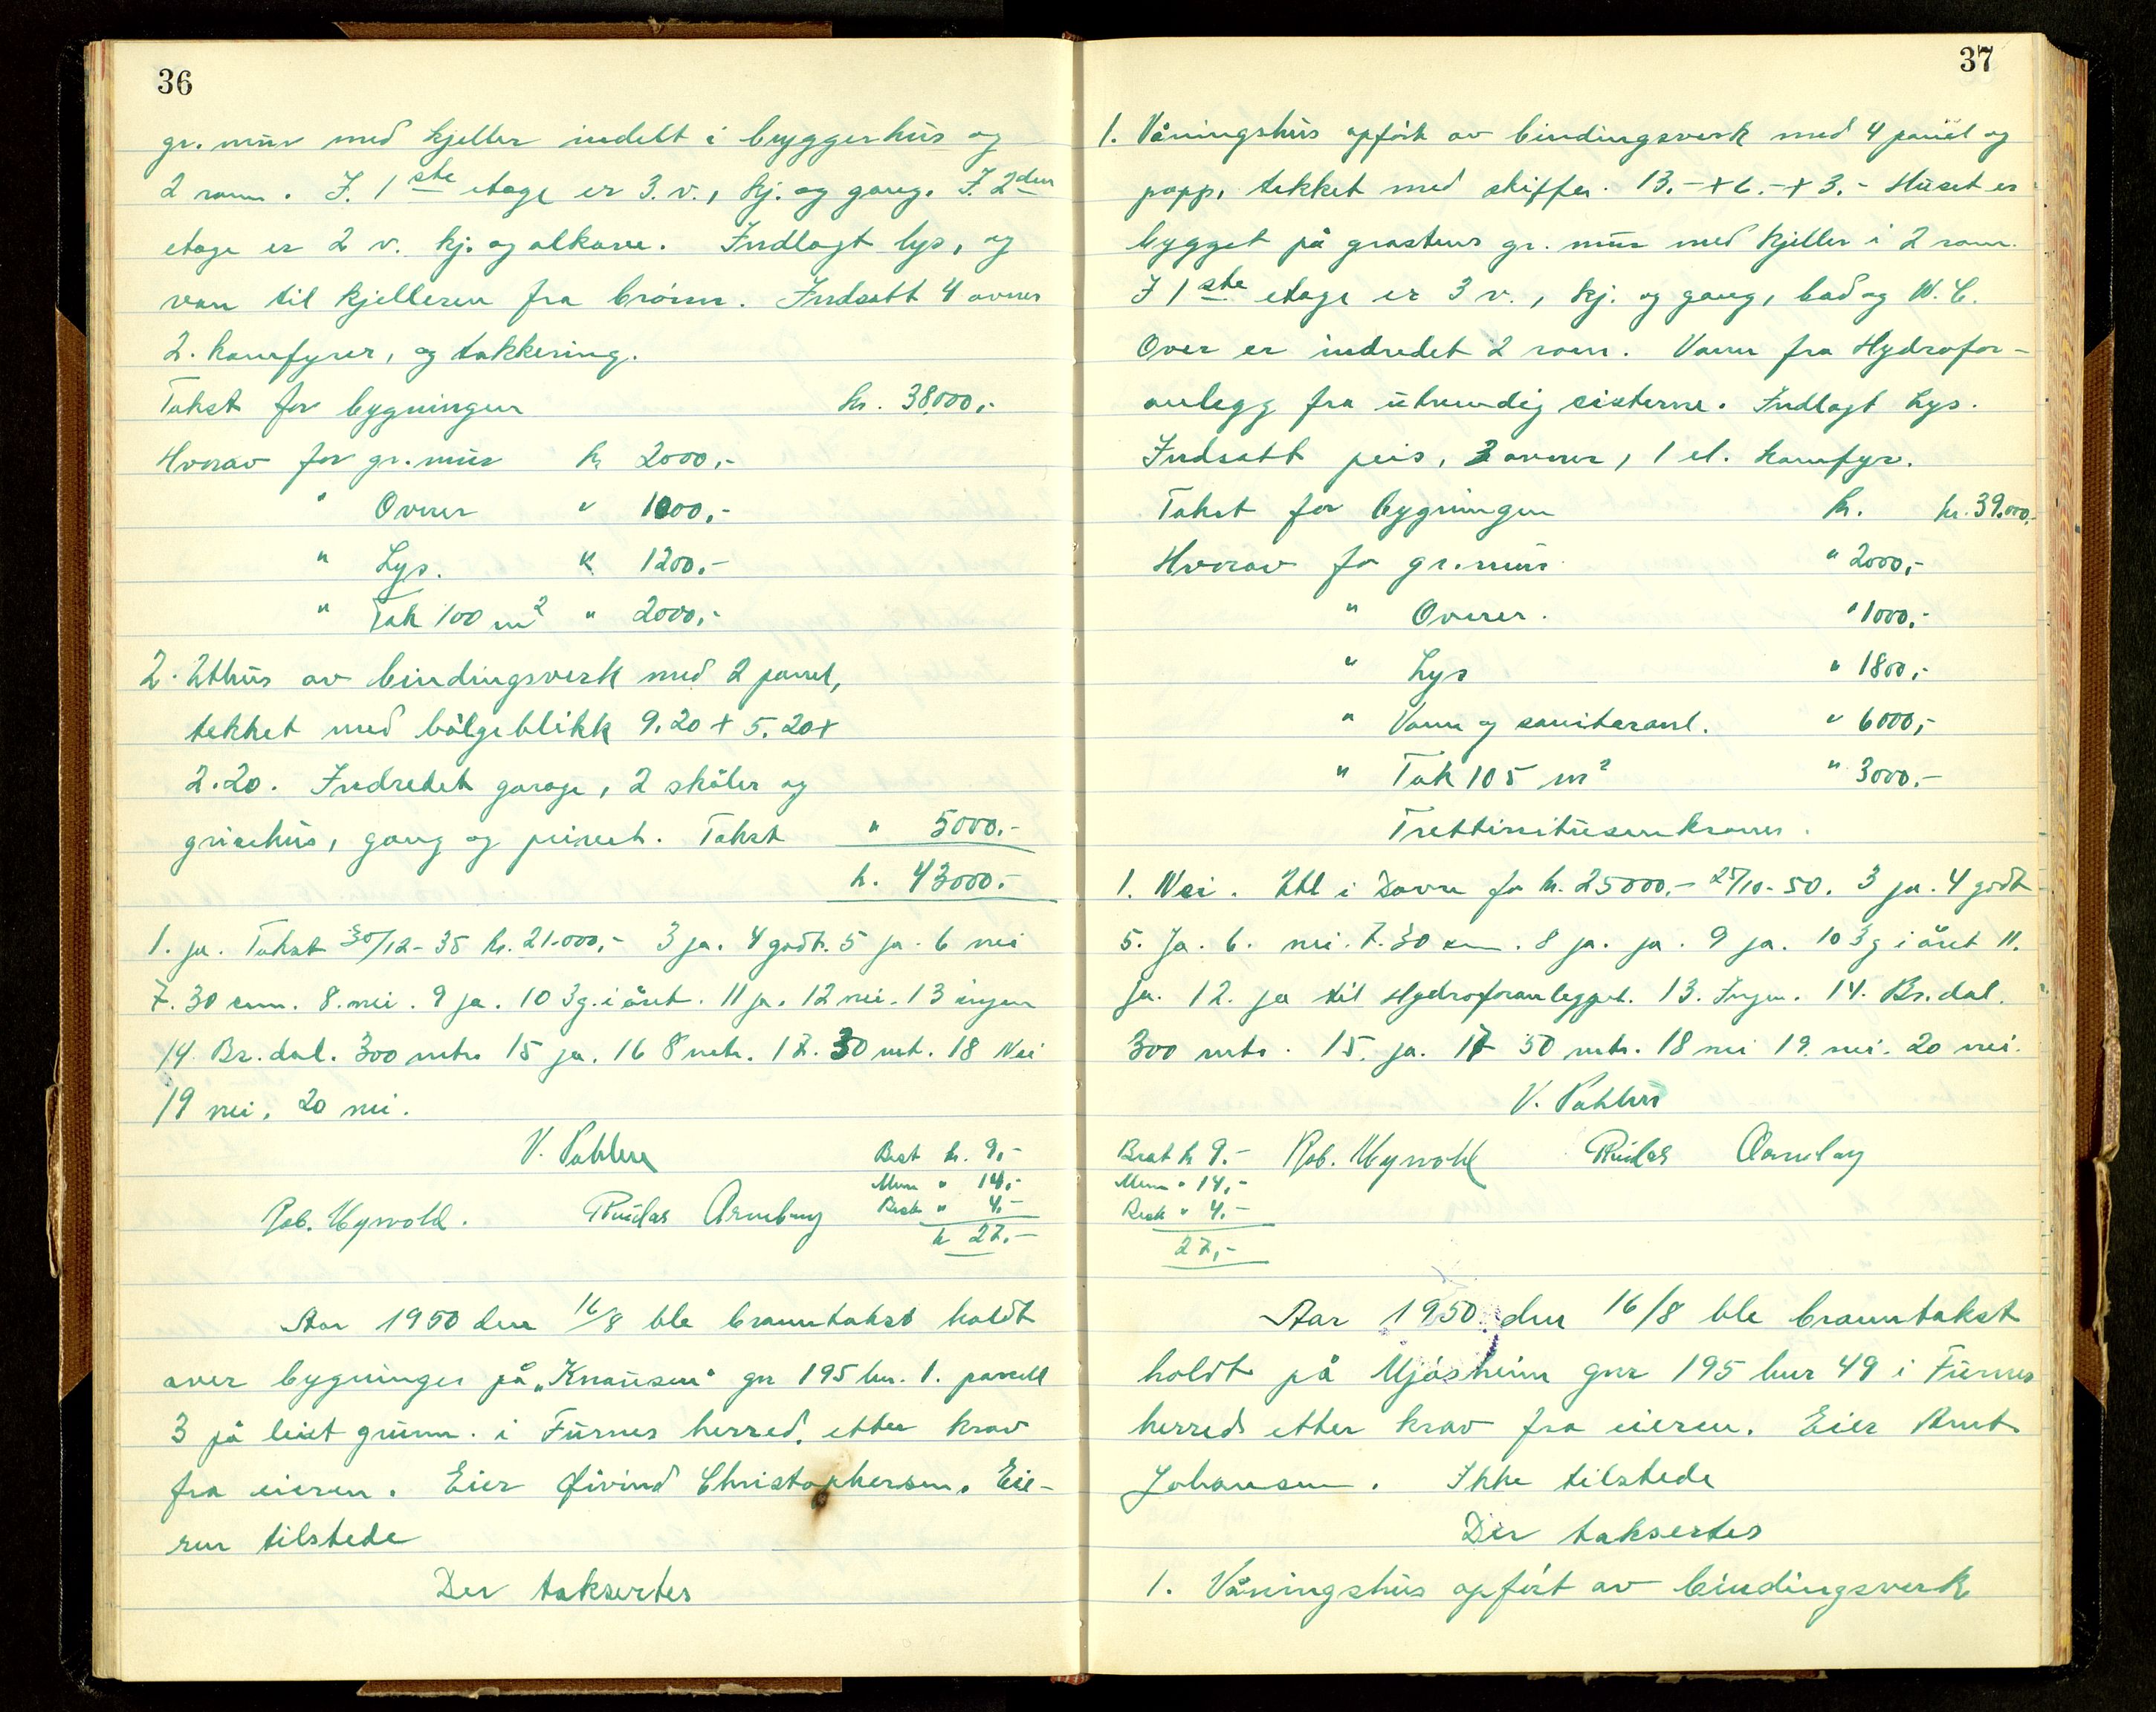 36
gr. mur med kjeller indelt i bryggerhus og
2 rom. I. 1ste etage er 3. v., kj. og gang. I. 2den
etage er 2 v. kj. og alkove. Indlagt lys, og
van til kjelleren fra brönn. Indsatt 4 ovner
2. komfyrer, og takkering.
Takst for bygningen kr. 38,000,-
Hvorav for gr. mur kr 2000,-
" Ovner " 1000,-
" Lys. " 1200,-
" Tak 100 m2 " 2000,-
2. Uthus av bindingsverk med 2 panel,
tekket med bölgeblikk 9.20 + 5.20 +
2.20. Indredet garage, 2 skåler og
grisehus, gang og privet. Takst " 5000.-
kr. 43000.-
1. ja. Takst 30/12-35 kr. 21.000,- 3 ja. 4 godt. 5 ja. 6 nei
7. 30 cm. 8. nei. 9 ja. 10 3 g. i året. 11 ja. 12 nei. 13 ingen
14. Br.dal. 300 mtr. 15 ja. 16 8 mtr. 17. 30 mt. 18 Nei
19 nei. 20 nei.
V. Pahlen
Best kr. 9,-
Mun " 14,-
Besk " 4.-
kr 27.-
Rob. Mysvold. Reidar Arneberg
Aar 1950 den 16/8 ble branntakst holdt
over bygninger på „Knausen" gnr 195 bnr. 1. parcell
3 på leiet grunn. i Furnes herred, etter krav
fra eieren. Eier Øivind Christophersen. Eie-
ren tilstede
Der taksertes
37
1. Våningshus opfört av bindingsverk med 4 panel og
papp, tekket med skiffer. 13.- + 6.- + 3.- Huset er
bygget på grastens gr. mur med kjeller i 2 rom.
I 1ste etage er 3 v., kj. og gang, bad og W.C.
Over er indredet 2 rom. Vann fra Hydrofor-
anlegg fra utvendig cisterne. Indlagt Lys.
Indsatt peis, 3 ovner, 1 el. komfyr.
Takst for bygningen kr. kr. 39.000,-
Hvorav for gr. mur " 2000,-
" Ovner. " 1000,-
" Lys " 1800,-
" Vann og sanitæranl. " 6000,-
" Tak 105 m2 " 3000.-
Trettinitusenkroner.
1. Nei. Utl i Dovre for kr. 25000.- 25/10-50. 3 ja. 4 godt
5. Ja. 6. nei. 7. 30 cm. 8 ja. ja. 9 ja. 10 3 g i året 11.
ja. 12. ja til Hydroforanlegget. 13. Ingen. 14. Br.dal.
300 mtr. 15. ja. 17 50 mtr. 18 nei 19. nei. 20 nei.
V. Pahlen
Best kr 9.- Rob. Mysvold Reidar Arneberg
Mun " 14,-
Besk " 4.-
27,-
Aar 1950 den 16/8 ble branntakst
holdt på Mjøsheim gnr 195 bnr 49 i Furnes
herred etter krav fra eieren. Eier Arnt
Johansen. Ikke tilstede
Der taksertes
1. Våningshus opfört av bindingsverk